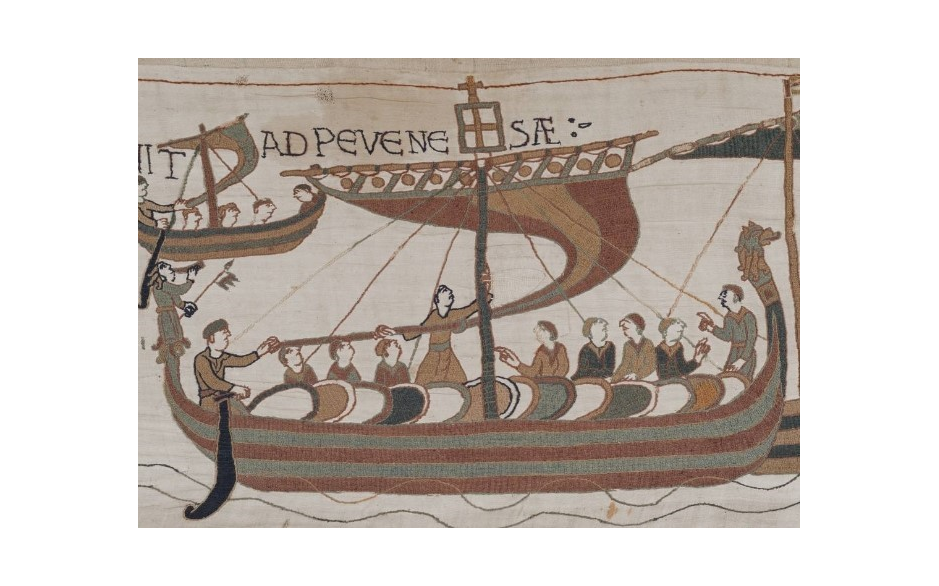 IT AD PEVENE SÆ :-